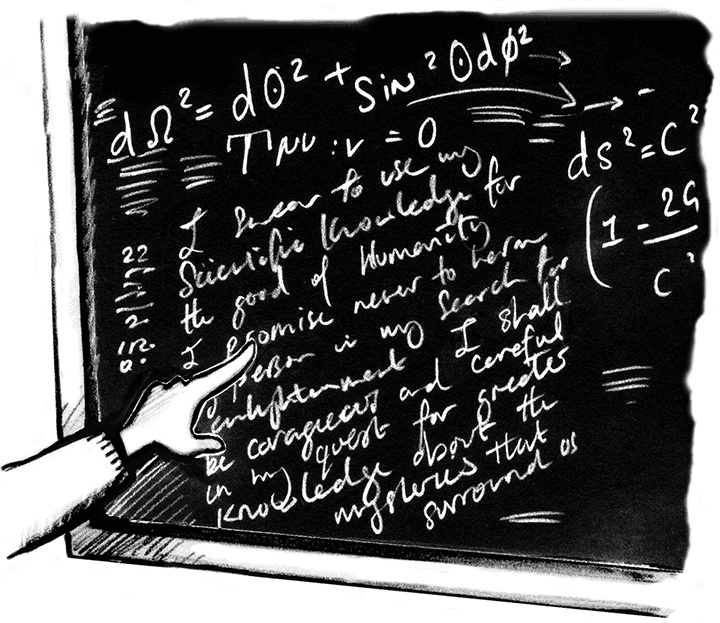 dΩ² = dθ² + sin²θdφ² →
→ -
Tμν;ν = 0
ds² = C²
(1 - 2G
C²
22
2
I swear to use my
Scientific Knowledge for
the good of Humanity
I promise never to harm
person in my search for
enlightenment I shall
be courageous and careful
in my quest for greater
Knowledge about the
mysteries that
surround us